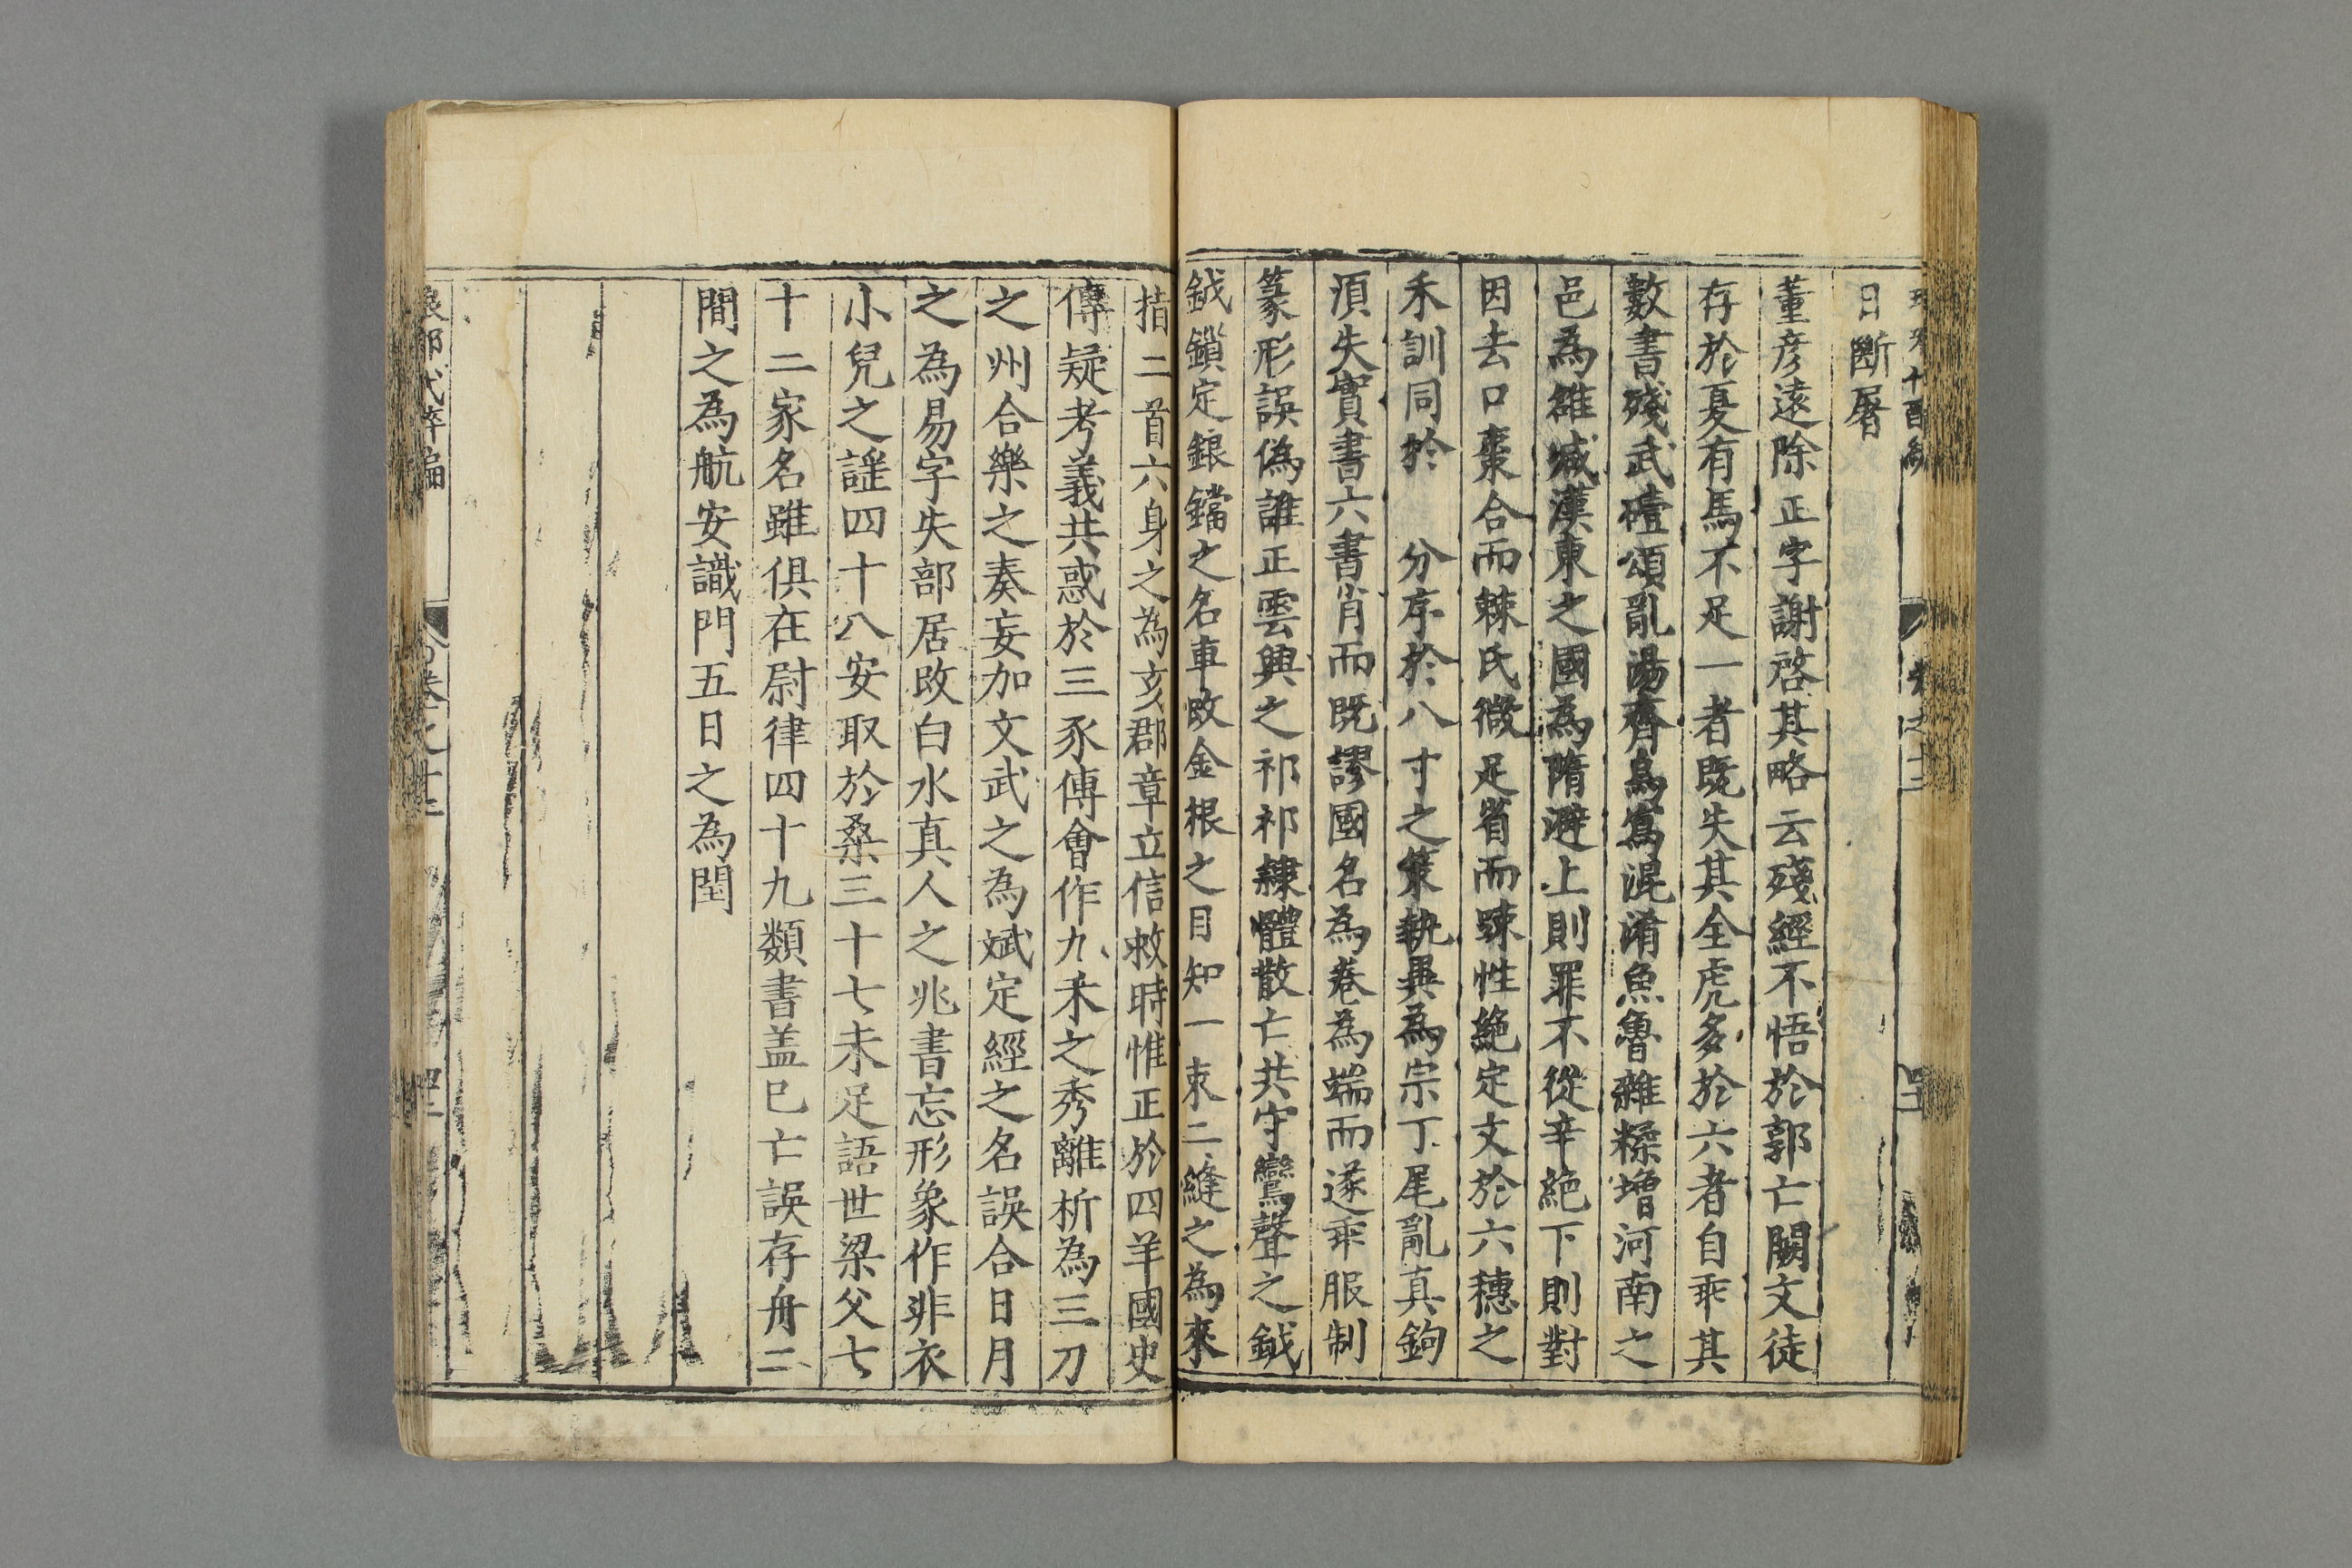 日斷屠
董彦遠除正字謝啓其略云殘經不悟於郭亡闕文徒
存於夏有馬不足一者既失其全虎多於六者自乖其
數書殘武礼頌亂湯齊烏寫混淆魚魯雜糅增河南之
邑為雒減漢東之國為隋避上則罪不從辛絶下則對
因去口棗合而棘氏微足省而踈性絶定文於六穗之
禾訓同於 分序於八寸之策執異為宗丁尾亂真鉤
須失實書六書肖而既謬國名為卷為端而遂乖服制
篆形誤偽誰正雲興之祁祁隷體散亡共守鸞聲之鉞
鉞鎖定銀鐺之名車改金根之目知一束二縫之為來
指二首六身之為亥郡章立信救時惟正於四羊國史
傳疑考義共惑於三豕傳會作九禾之秀離析為三刀
之州合樂之奏妄加文武之為斌定經之名誤合日月
之為易字失部居改白水真人之兆書忘形象作非衣
小兒之謡四十八安取於桑三十七未足語世梁父七
十二家名雖俱在尉律四十九類書盖已亡誤存舟二
間之為航安識門五日之為閏
琅邪代醉編 卷之十二